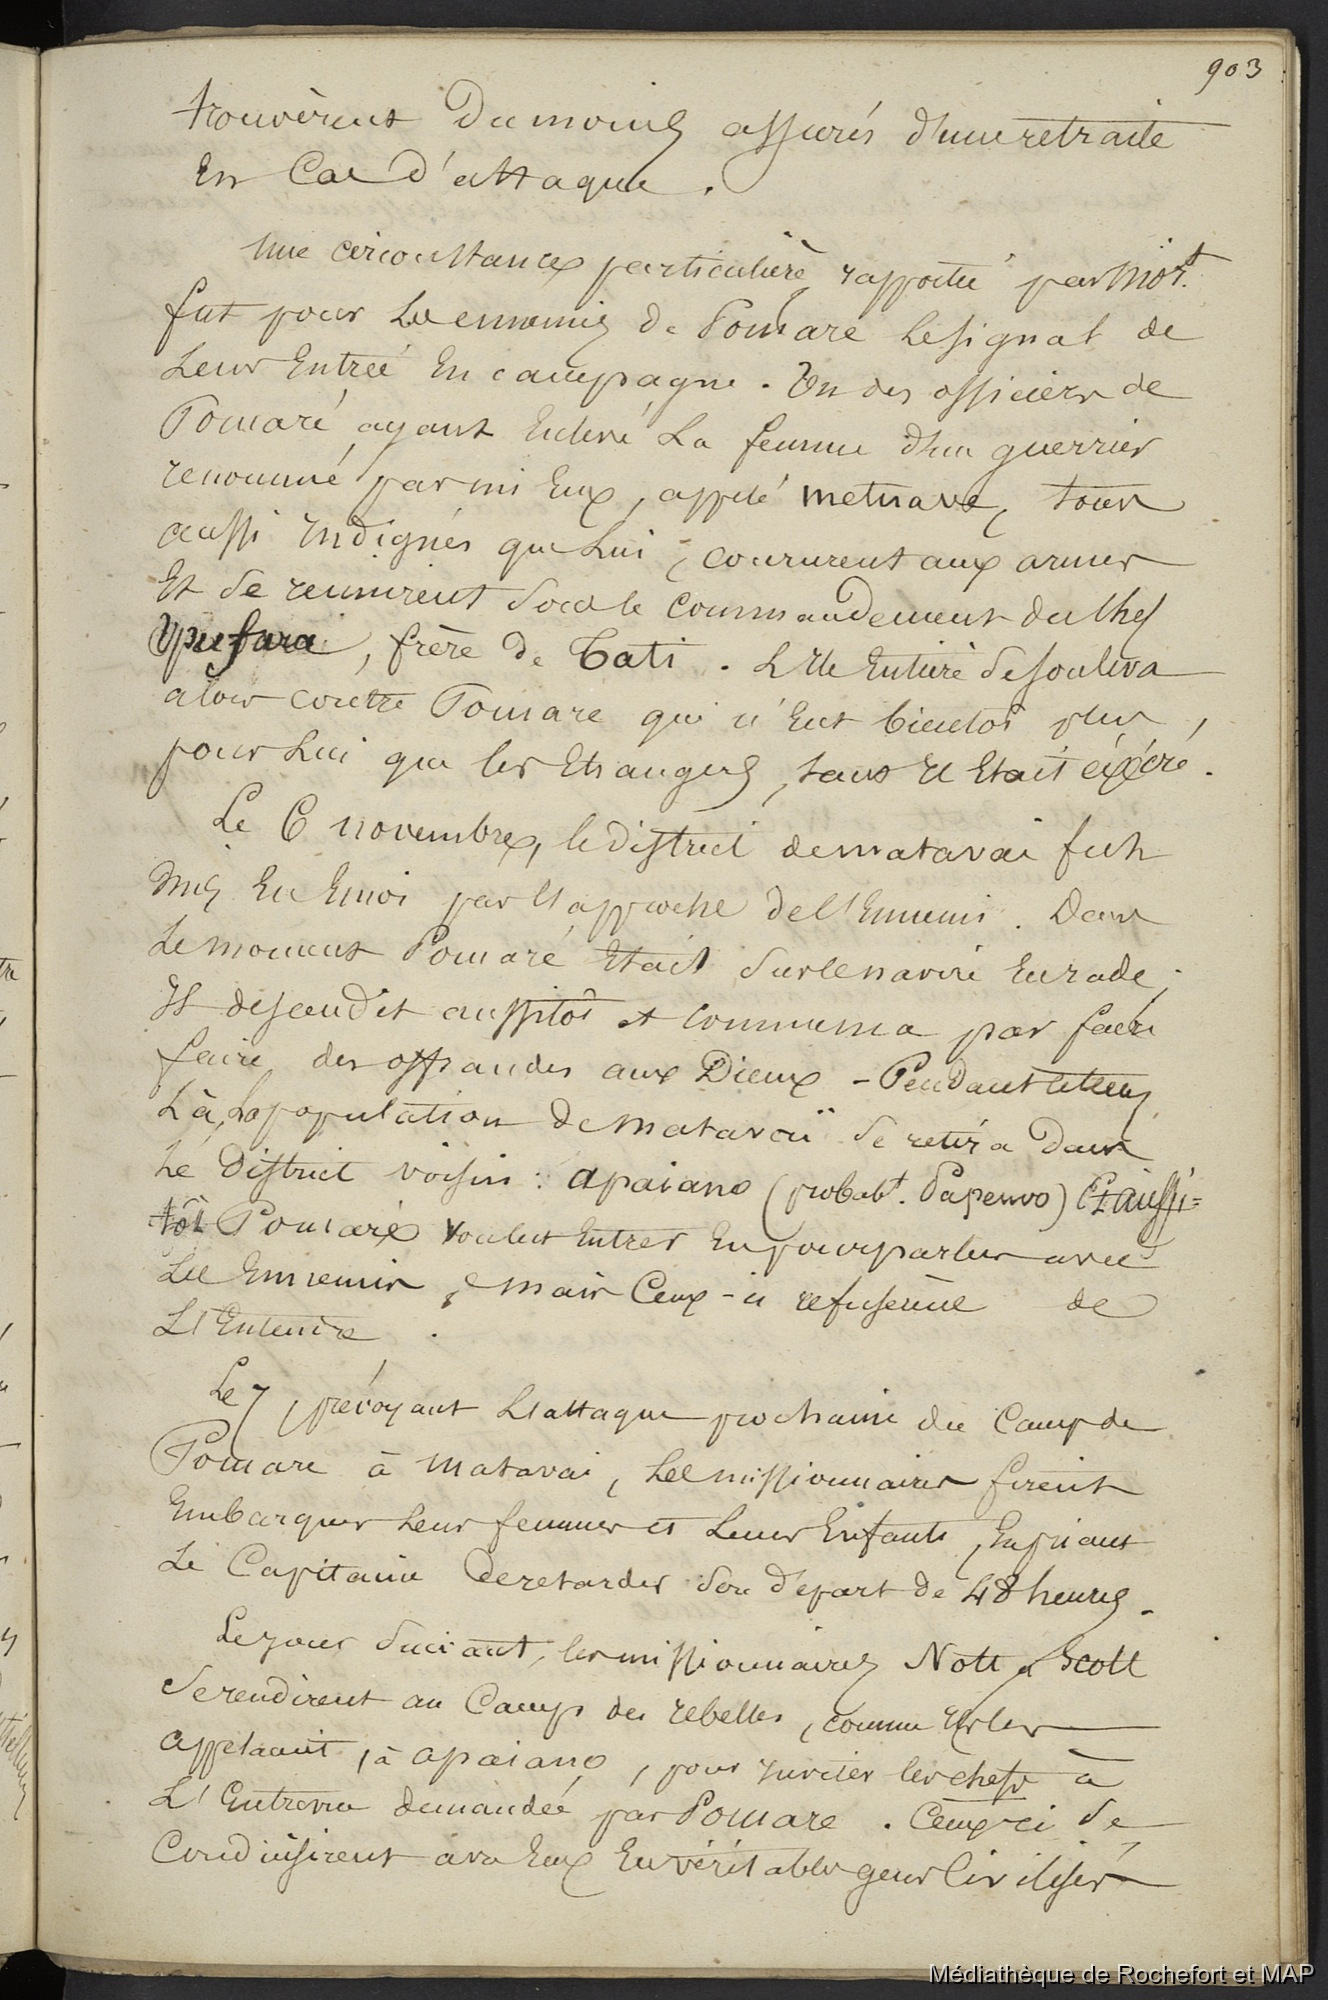 903
trouvèrent du moins assurés d'une retraite
En Cas d'attaque.
Une circonstance particulière, rapportée par Mort.
fut pour les ennemis de Pomare le signal de
leur Entrée En campagne. Un des officiers de
Pomaré, ayant Enlevé la femme d'un guerrier
renommé parmi Eux, appelé Metuave, tous
aussi Indignés que lui, coururent aux armes
Et se reunirent sous le commandement du Chef
Upufara, frère de Tati. L'Ile Entière se souleva
alors contre Pomare qui n'Eut bientôt plus,
pour lui que les Etrangers, tant Il Etait éxécré.
Le 6 novembre, le District de Matavai fut
mis En Emoi par l'approche de l'Ennemi. Dans
le moment Pomaré Etait sur le navire En rade;
Il descendit aussitôt et commença par faire
faire des offrandes aux Dieux - Pendant ce tems
là, la population de Mataväi se retira dans
le District voisin: Apaiano (probabt. Papenoo) Et aussi=
tôt Pomaré voulut Entrer En pourparlers avec
les Ennemis, mais Ceux-ci refusèrent de
L'Entendre.
Le 7, prévoyant l'attaque prochaine du Camp de
Pomare à Matavai, les missionnaires firent
Embarquer leurs femmes et leurs Enfants, En priant
le Capitaine de retarder son départ de 48 heures.
Le jour suivant, les missionnaires Nott et Scott
se rendirent au Camp des rebelles, comme Ils les
appelaient, à Apaiano, pour inviter les chefs à
L'Entrevue demandée par Pomare. Ceux-ci se
conduisirent avec Eux En véritables gens Civilisés
Médiathèque de Rochefort et MAP